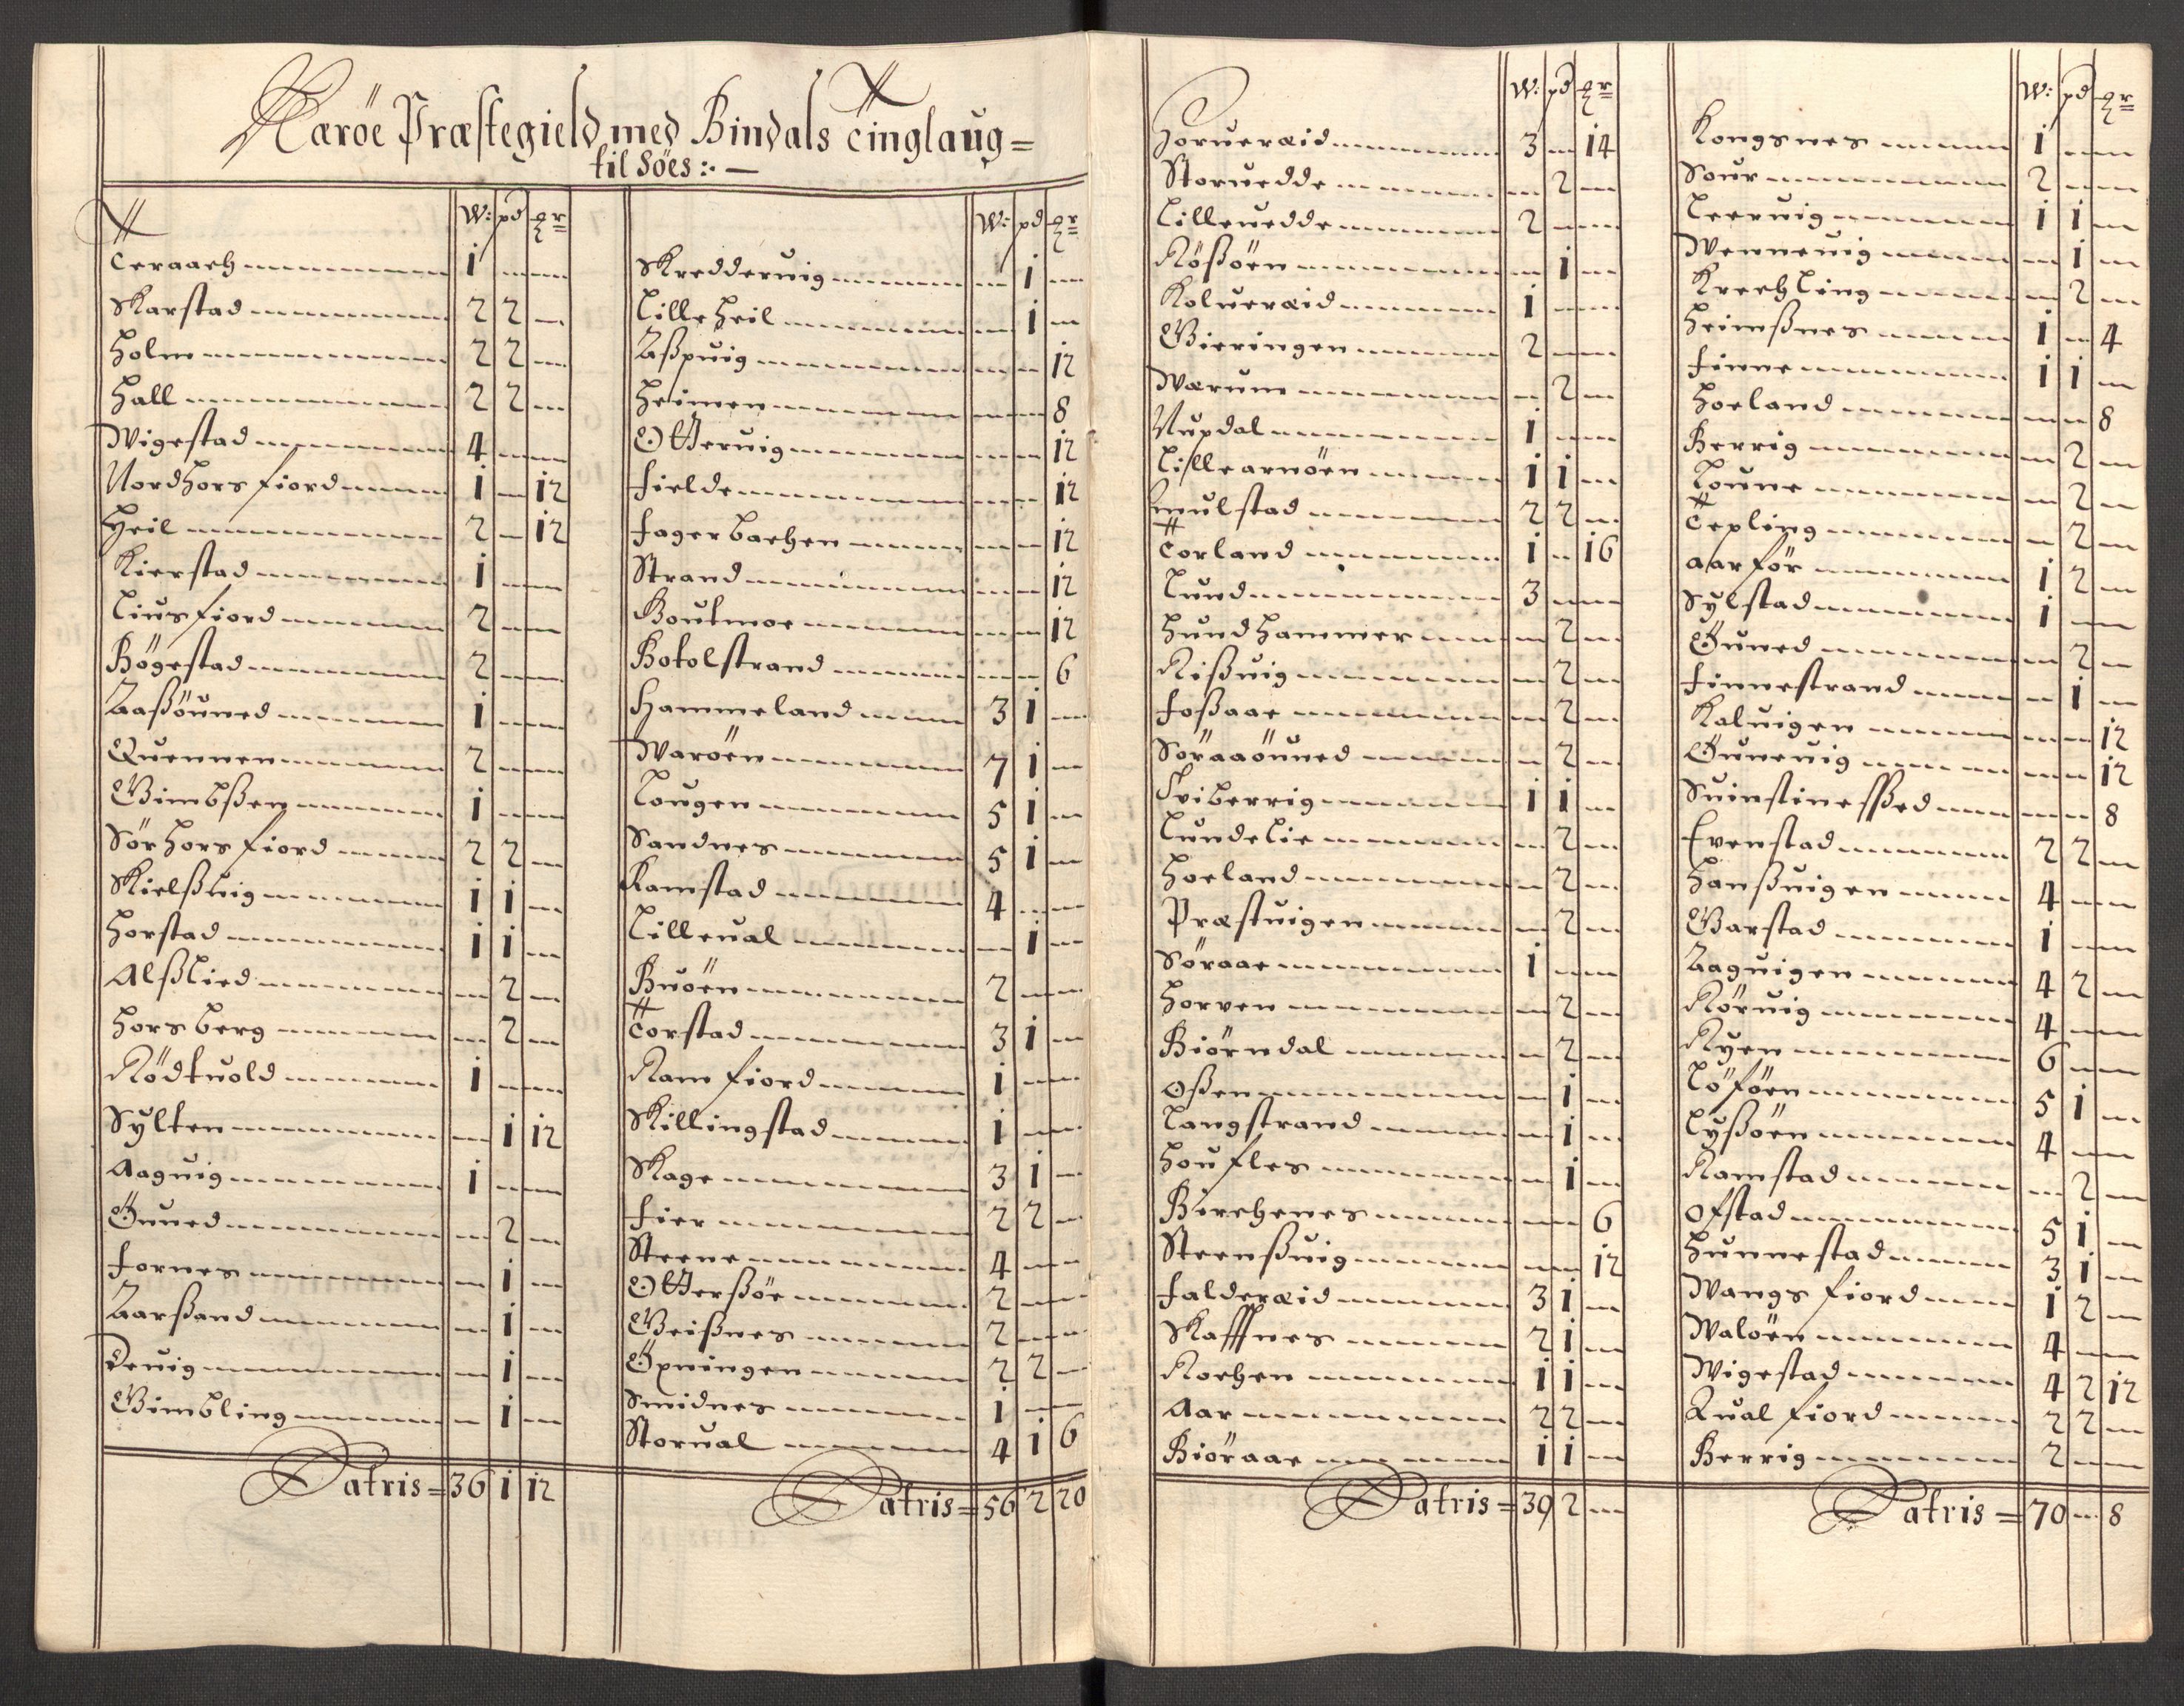 Næröe Præstegield med Bindals Tinglaug =
til Söes :. —
W: pd gr
Teraach 1
Skarstad 2 2
Holm 2 2
Hall 2 2
Wigestad 4
Nordhorsfiord 1 12
Heil 2 12
Kierstad 1
Liusfiord 2
Bögestad 2
Aaßöuned 1
Quennen 2
Gimbßen 1
Sörhorsfiord 2 2
Kielßuig 1 1
Horstad 1 1
Alßlied 2
Horsberg 2
Rödkuold 1
Sylten 1 12
Aaguig 1
Öuned 2
Fornes 1
Aarßand 1
Teuig 1
Gimbling 1
Latris = 36 1 12
W: pd gr
Skredderuig 1
Lilleheil 1
Aßpuig 12
Heimen 8
Otteruig 12
Fielde 12
Fagerbachen 12
Strand 12
Boutmoe 12
Botolstrand 6
Hammeland 3 1
Waröen 7 1
Lougen 5 1
Sandnes 5 1
Ramstad 4
Lilleual 1
Buöen 2
Torstad 3 1
Ramfiord 1
Skillingstad 1
Skage 3 1
Fier 2 2
Steene 4
Otterßöe 2
Geißnes 2
Öpningen 2 2
Smidnes 1
Storual 4 1 6
Latris = 56 2 20
W: pd gr
Horueræid 3 14
Storuedde 2
Lilleuedde 2
Rößöen 1
Kolueræid 1
Gieringen 2
Wærum 2
Nupdal 1
Lillearnöen 1 1
Emulstad 2 2
Torland 1 16
Lund 3
Hundhammer 2
Rißuig 2
Foßaae 2
Söraaöuned 2
Sviberrig 1 1
Lundelie 2
Hoeland 2
Præstuigen 2
Söraae 1
Horven 2
Biörndal 2
Oßen 1
Langstrand 1
Houfles 1
Birchenes 6
Steenßuig 12
Falderæid 3 1
Skaffnes 2 1
Kochen 1 1
Aar 2 2
Biöraae 1 1
Latris = 39 2
W: pd gr
Kongsnes 1
Sour 2
Leeruig 1 1
Wenneuig 1
Krechling 2
Heimßnes 1 4
Finne 1 1
Hoeland 8
Berrig 2
Loune 2
Tepling 2
Aarför 1 2
Sylstad 1
Öuned 2
Finnestrand 1
Kaluigen 12
Öuneuig 12
Suinstinessßed 8
Evenstad 2 2
Hanßuigen 4
Garstad 1
Aaguigen 4 2
Röruig 4
Ryen 6
Löföen 5 1
Lyßöen 4
Ramstad 2
Ofstad 5 1
Hunnestad 3 1
Wangsfiord 1 2
Walöen 4
Wigestad 4 2 12
Qualfiord 2 2
Berrig 2
Latris = 70 8